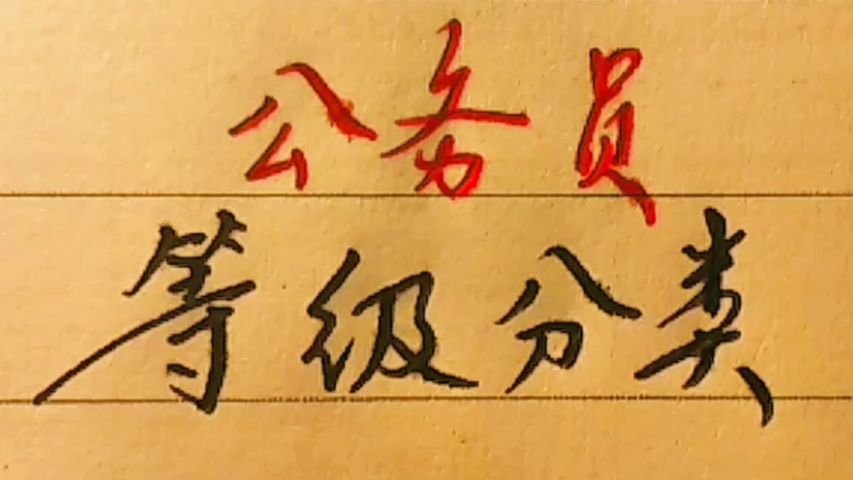 公务员
等级分类